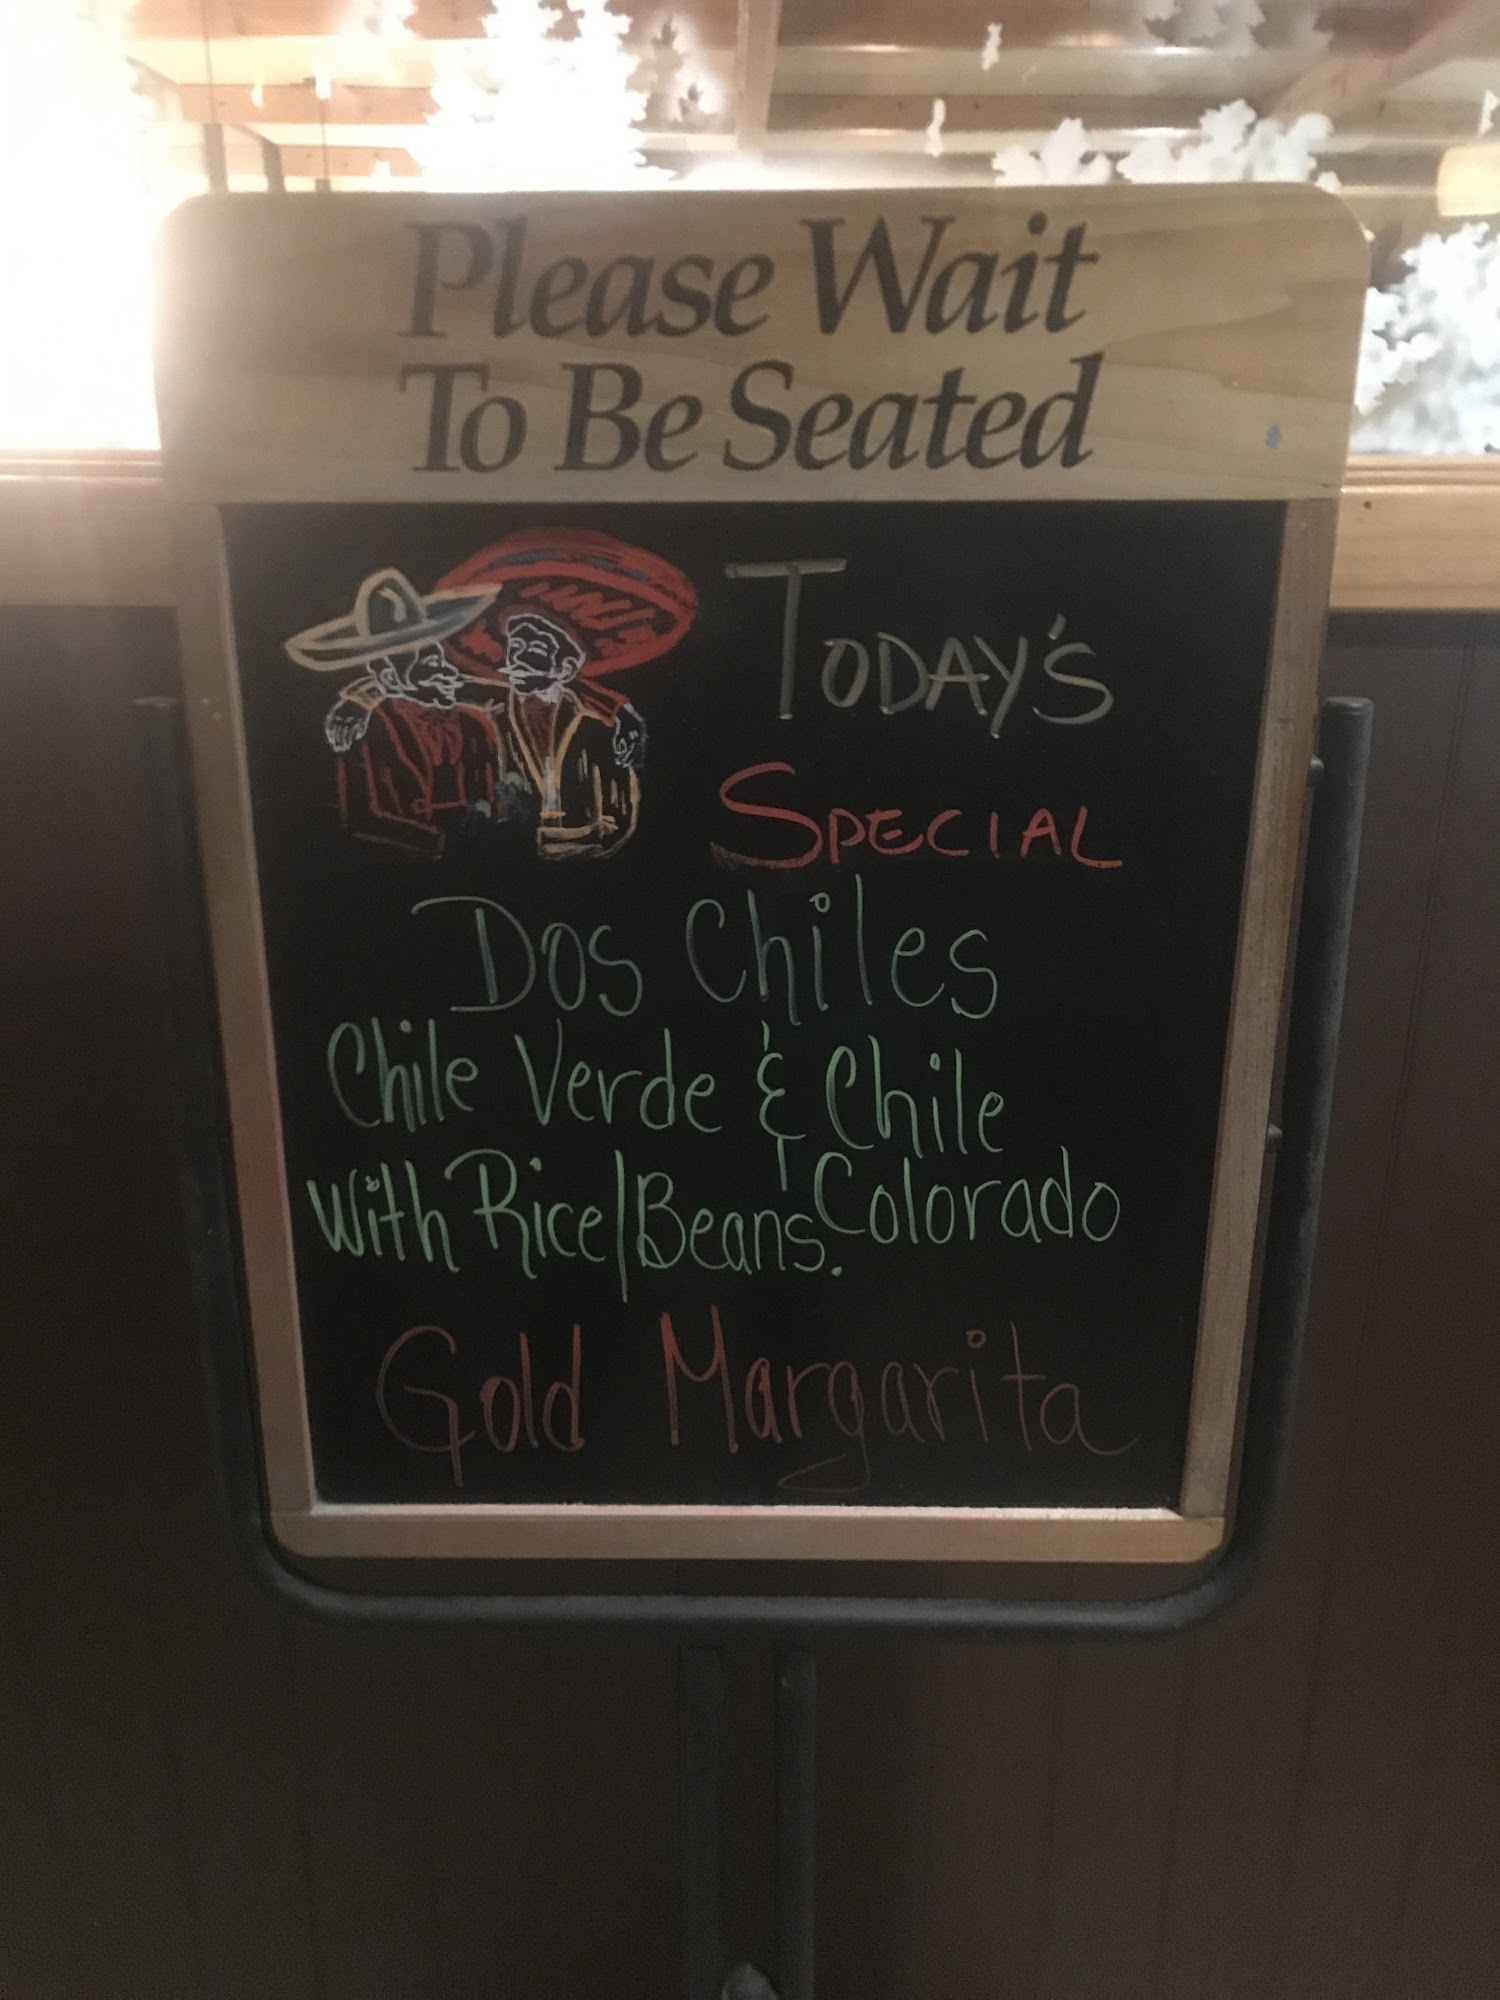 Please Wait
To Be Seated
TODAY'S
SPECIAL
Dos Chiles
Chile Verde & Chile
Colorado
With Rice/Beans.
Gold Margarita